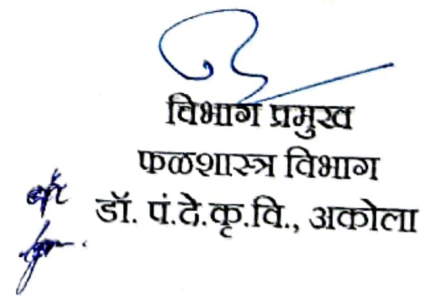 विभाग प्रमुख
फळशास्त्र विभाग
डॉ. पं.दे.कृ.वि., अकोला